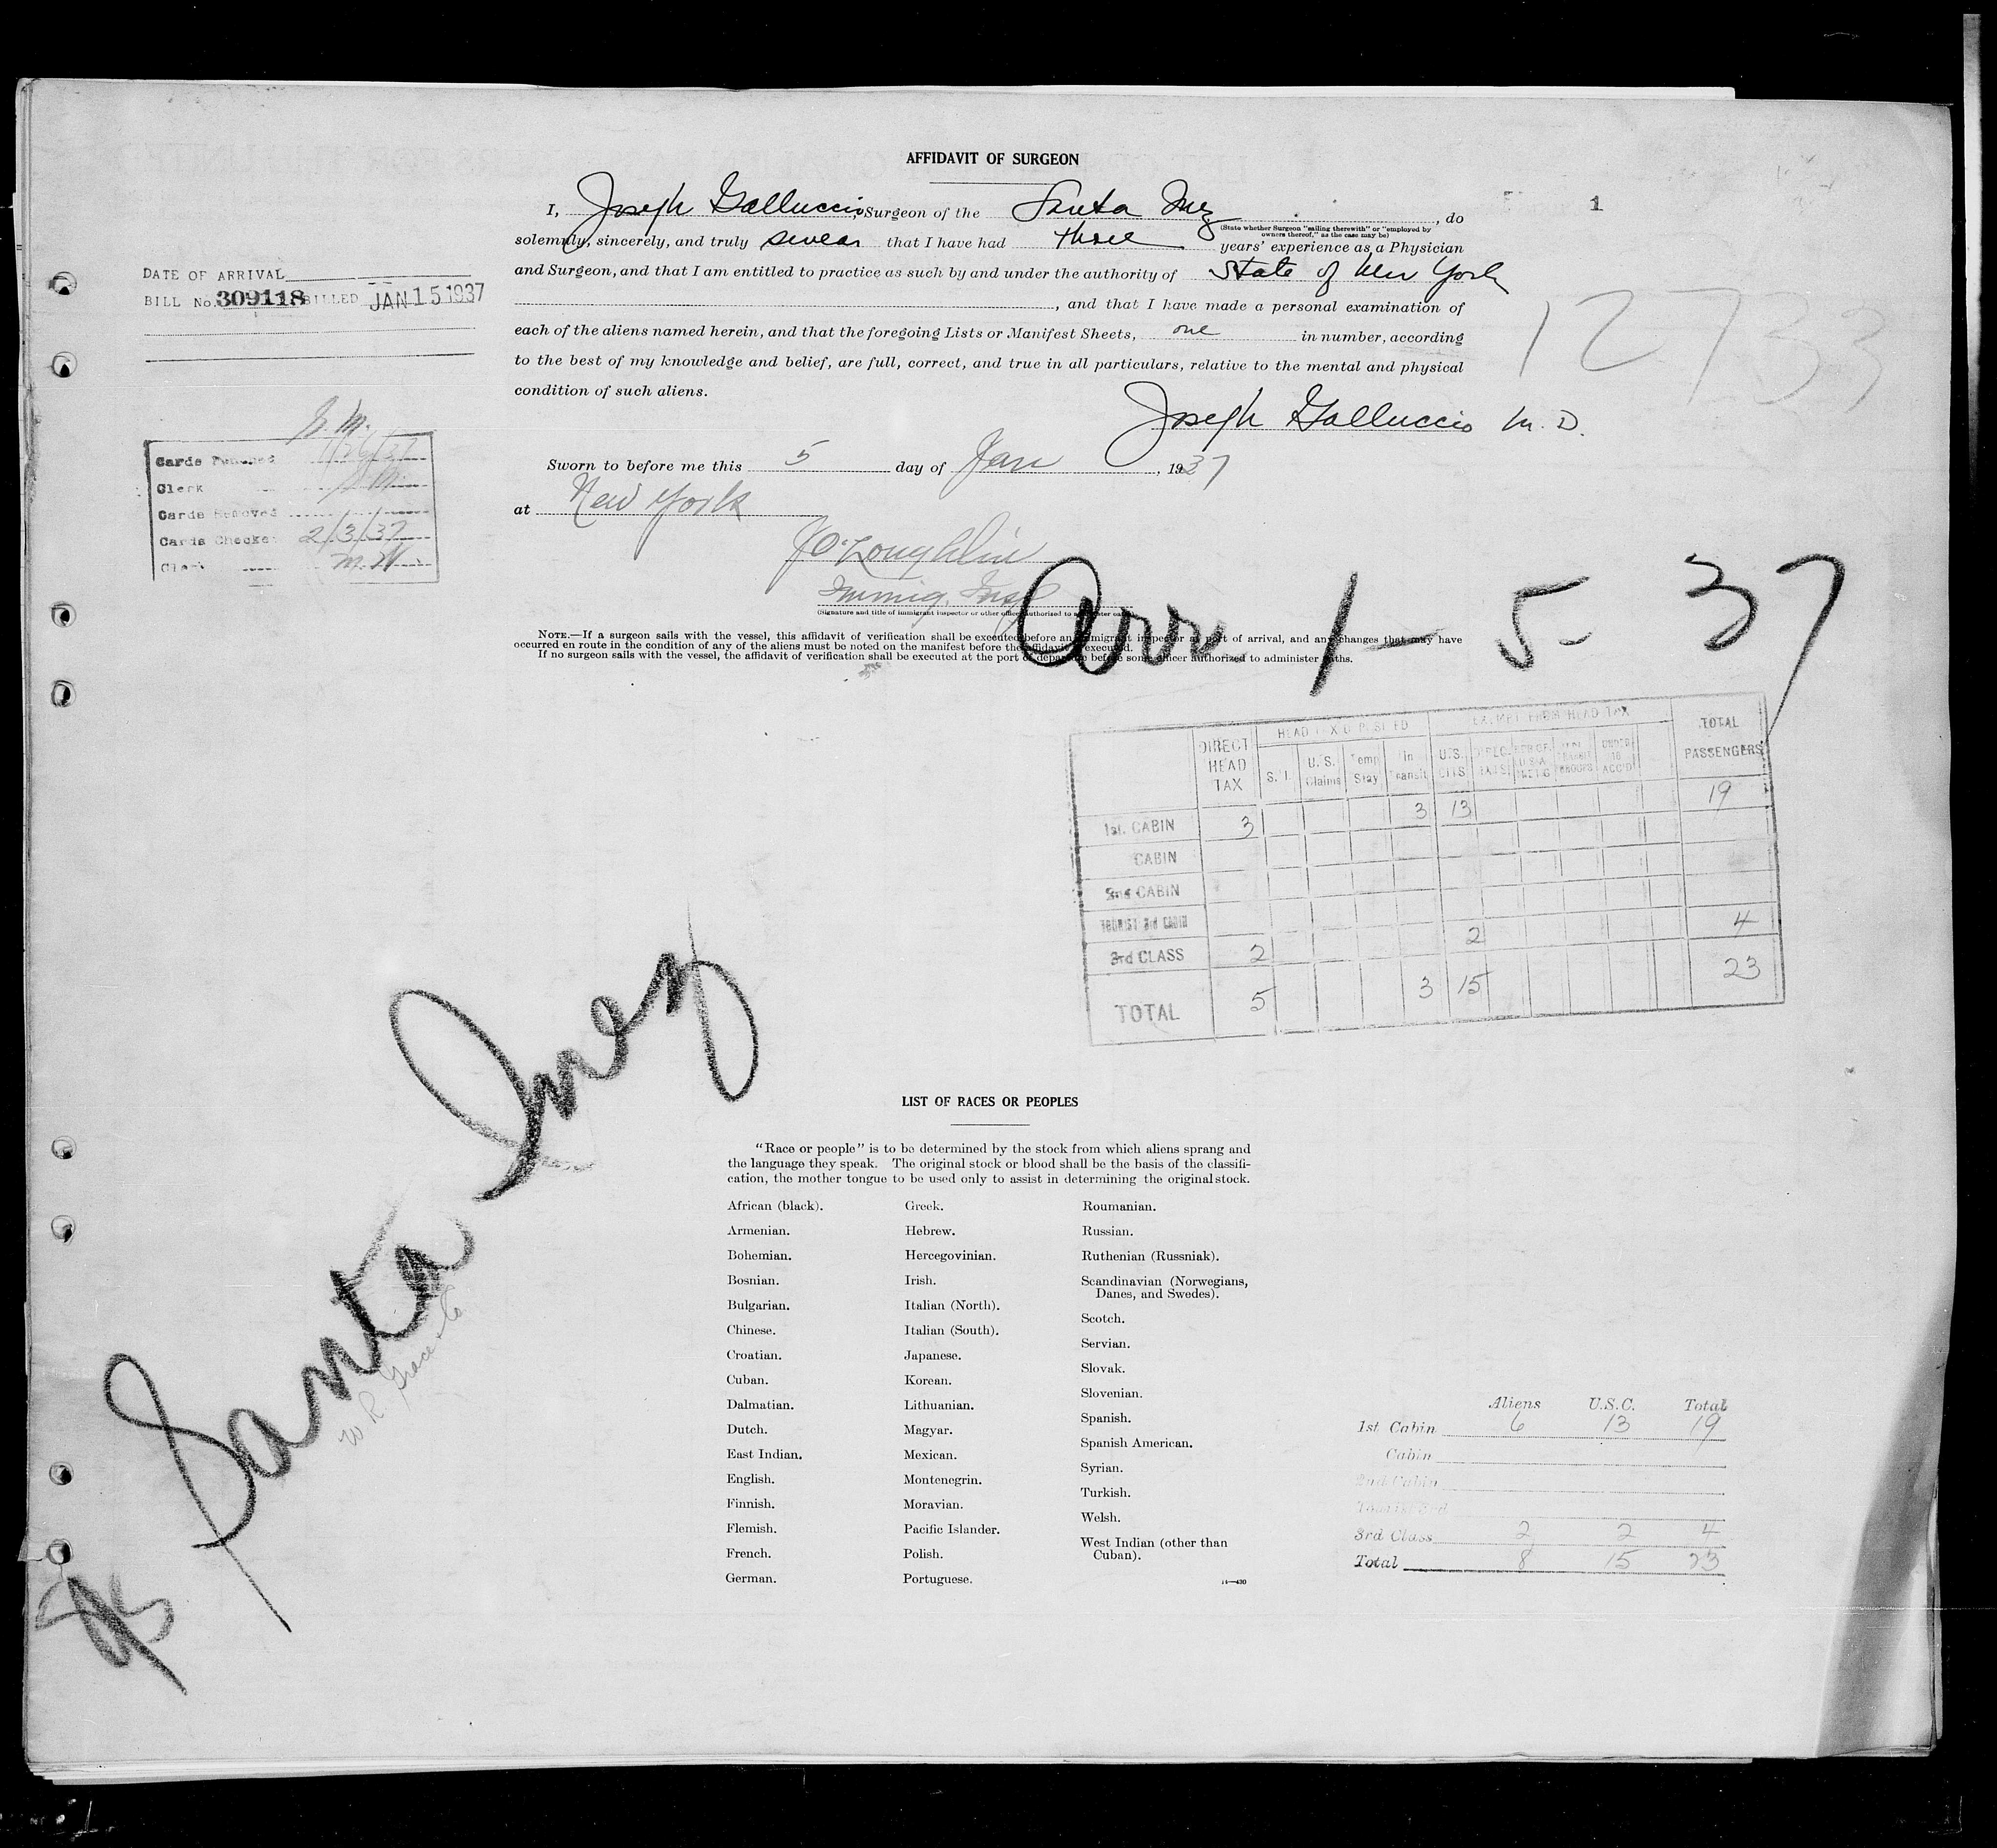 AFFIDAVIT OF SURGEON
1
I, Joseph Galluccio, Surgeon of the Santa Inez, do
(State whether Surgeon "sailing therewith" or "employed by owners thereof," as the case may be)
solemnly, sincerely, and truly swear that I have had three years' experience as a Physician
and Surgeon, and that I am entitled to practice as such by and under the authority of State of New York
, and that I have made a personal examination of
each of the aliens named herein, and that the foregoing Lists or Manifest Sheets, one in number, according
to the best of my knowledge and belief, are full, correct, and true in all particulars, relative to the mental and physical
condition of such aliens.
Joseph Galluccio M.D.
Sworn to before me this 5 day of Jan, 1937
at New York
J O'Loughlin
Immig. Insp
(Signature and title of immigrant inspector or other officer authorized to administer oaths)
NOTE.—If a surgeon sails with the vessel, this affidavit of verification shall be executed before an immigrant inspector at port of arrival, and any changes that may have
occurred en route in the condition of any of the aliens must be noted on the manifest before the affidavit is executed.
If no surgeon sails with the vessel, the affidavit of verification shall be executed at the port of departure before some officer authorized to administer oaths.
DATE OF ARRIVAL
BILL No. 309118 BILLED JAN 15 1937
12733
Cards Punched 1/26/37
Clerk
Cards Removed
Cards Checked 2/3/37
Clerk
Arr 1-5-37
DIRECT HEAD TAX
HEAD TAX DEPOSITED
S. I. U.S. Claims Temp Stay In Transit
EXEMPT FROM HEAD TAX
U.S. CITS
UNDER 16 ACC'D
TOTAL PASSENGERS
1st. CABIN 3 3 13 19
CABIN
2nd CABIN
TOURIST 3rd CABIN
3rd CLASS 2 2 4
TOTAL 5 3 15 23
Santa Inez
W R Grace & Co
LIST OF RACES OR PEOPLES
"Race or people" is to be determined by the stock from which aliens sprang and
the language they speak. The original stock or blood shall be the basis of the classifi-
cation, the mother tongue to be used only to assist in determining the original stock.
African (black).
Armenian.
Bohemian.
Bosnian.
Bulgarian.
Chinese.
Croatian.
Cuban.
Dalmatian.
Dutch.
East Indian.
English.
Finnish.
Flemish.
French.
German.
Greek.
Hebrew.
Hercegovinian.
Irish.
Italian (North).
Italian (South).
Japanese.
Korean.
Lithuanian.
Magyar.
Mexican.
Montenegrin.
Moravian.
Pacific Islander.
Polish.
Portuguese.
Roumanian.
Russian.
Ruthenian (Russniak).
Scandinavian (Norwegians,
Danes, and Swedes).
Scotch.
Servian.
Slovak.
Slovenian.
Spanish.
Spanish American.
Syrian.
Turkish.
Welsh.
West Indian (other than
Cuban).
Aliens U.S.C. Total
1st Cabin 6 13 19
Cabin
2nd Cabin
Tourist 3rd
3rd Class 2 2 4
Total 8 15 23